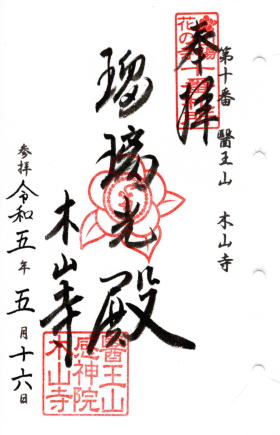 第十番 醫王山 木山寺
奉拝
瑠璃光殿
木山寺
参拝 令和五年五月十六日
醫王山
感神院
木山寺